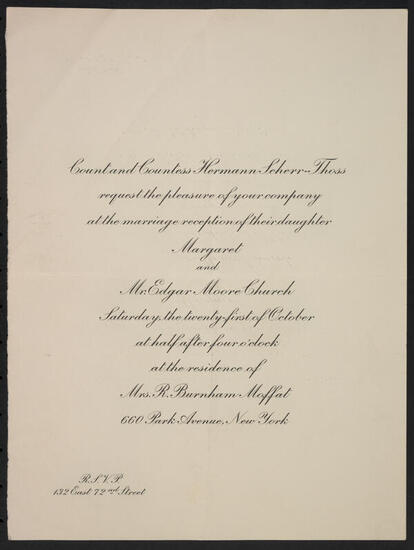 Count and Countess Hermann Scherr-Thoss
request the pleasure of your company
at the marriage reception of their daughter
Margaret
and
Mr. Edgar Moore Church
Saturday, the twenty-first of October
at half after four o'clock
at the residence of
Mrs. R. Burnham Moffat
660 Park Avenue, New York
R.S.V.P.
132 East 72nd Street